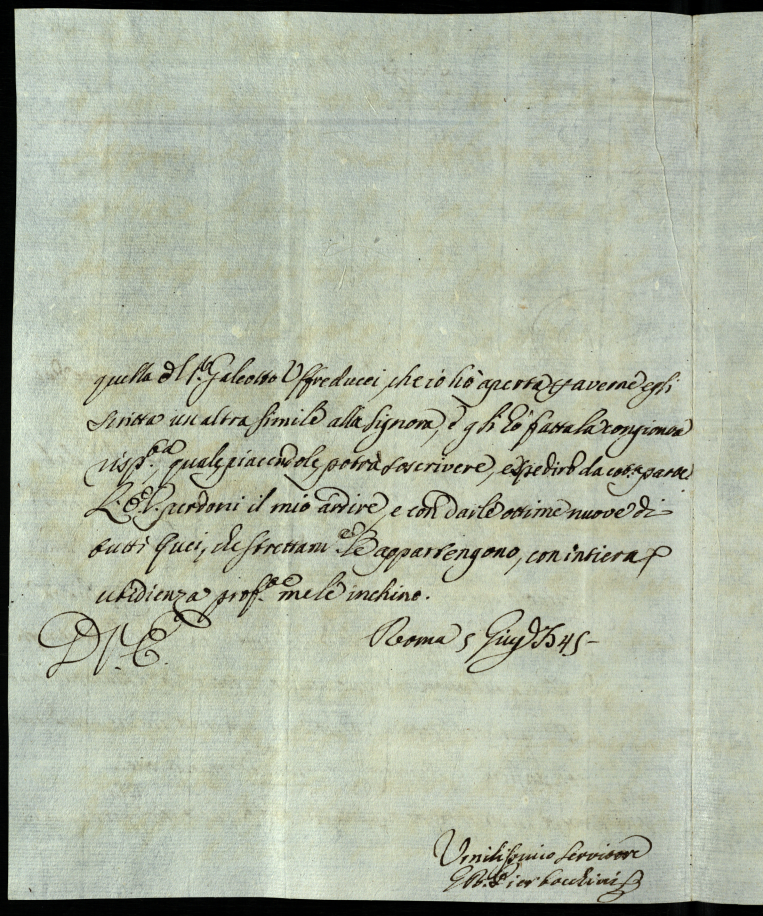 quella del Sig.r Galeotto Uffreducci, che io hò aperta, et avendo egli
scritta un altra simile alla Signora, e gli hò fatta la congionta
risp.ta, quale piacendole, potrà soscrivere, e spedire da cotesta parte.
V. E. perdoni il mio ardire, e con darle ottime nuove di
tutti quei, che strettam.te Le appartengono, con intiera
ubidienza prof.te me le inchino.
D. V. E.
Roma 5 Giug.o 1745
Umilissimo Servitore
Gio. Pier bacchini